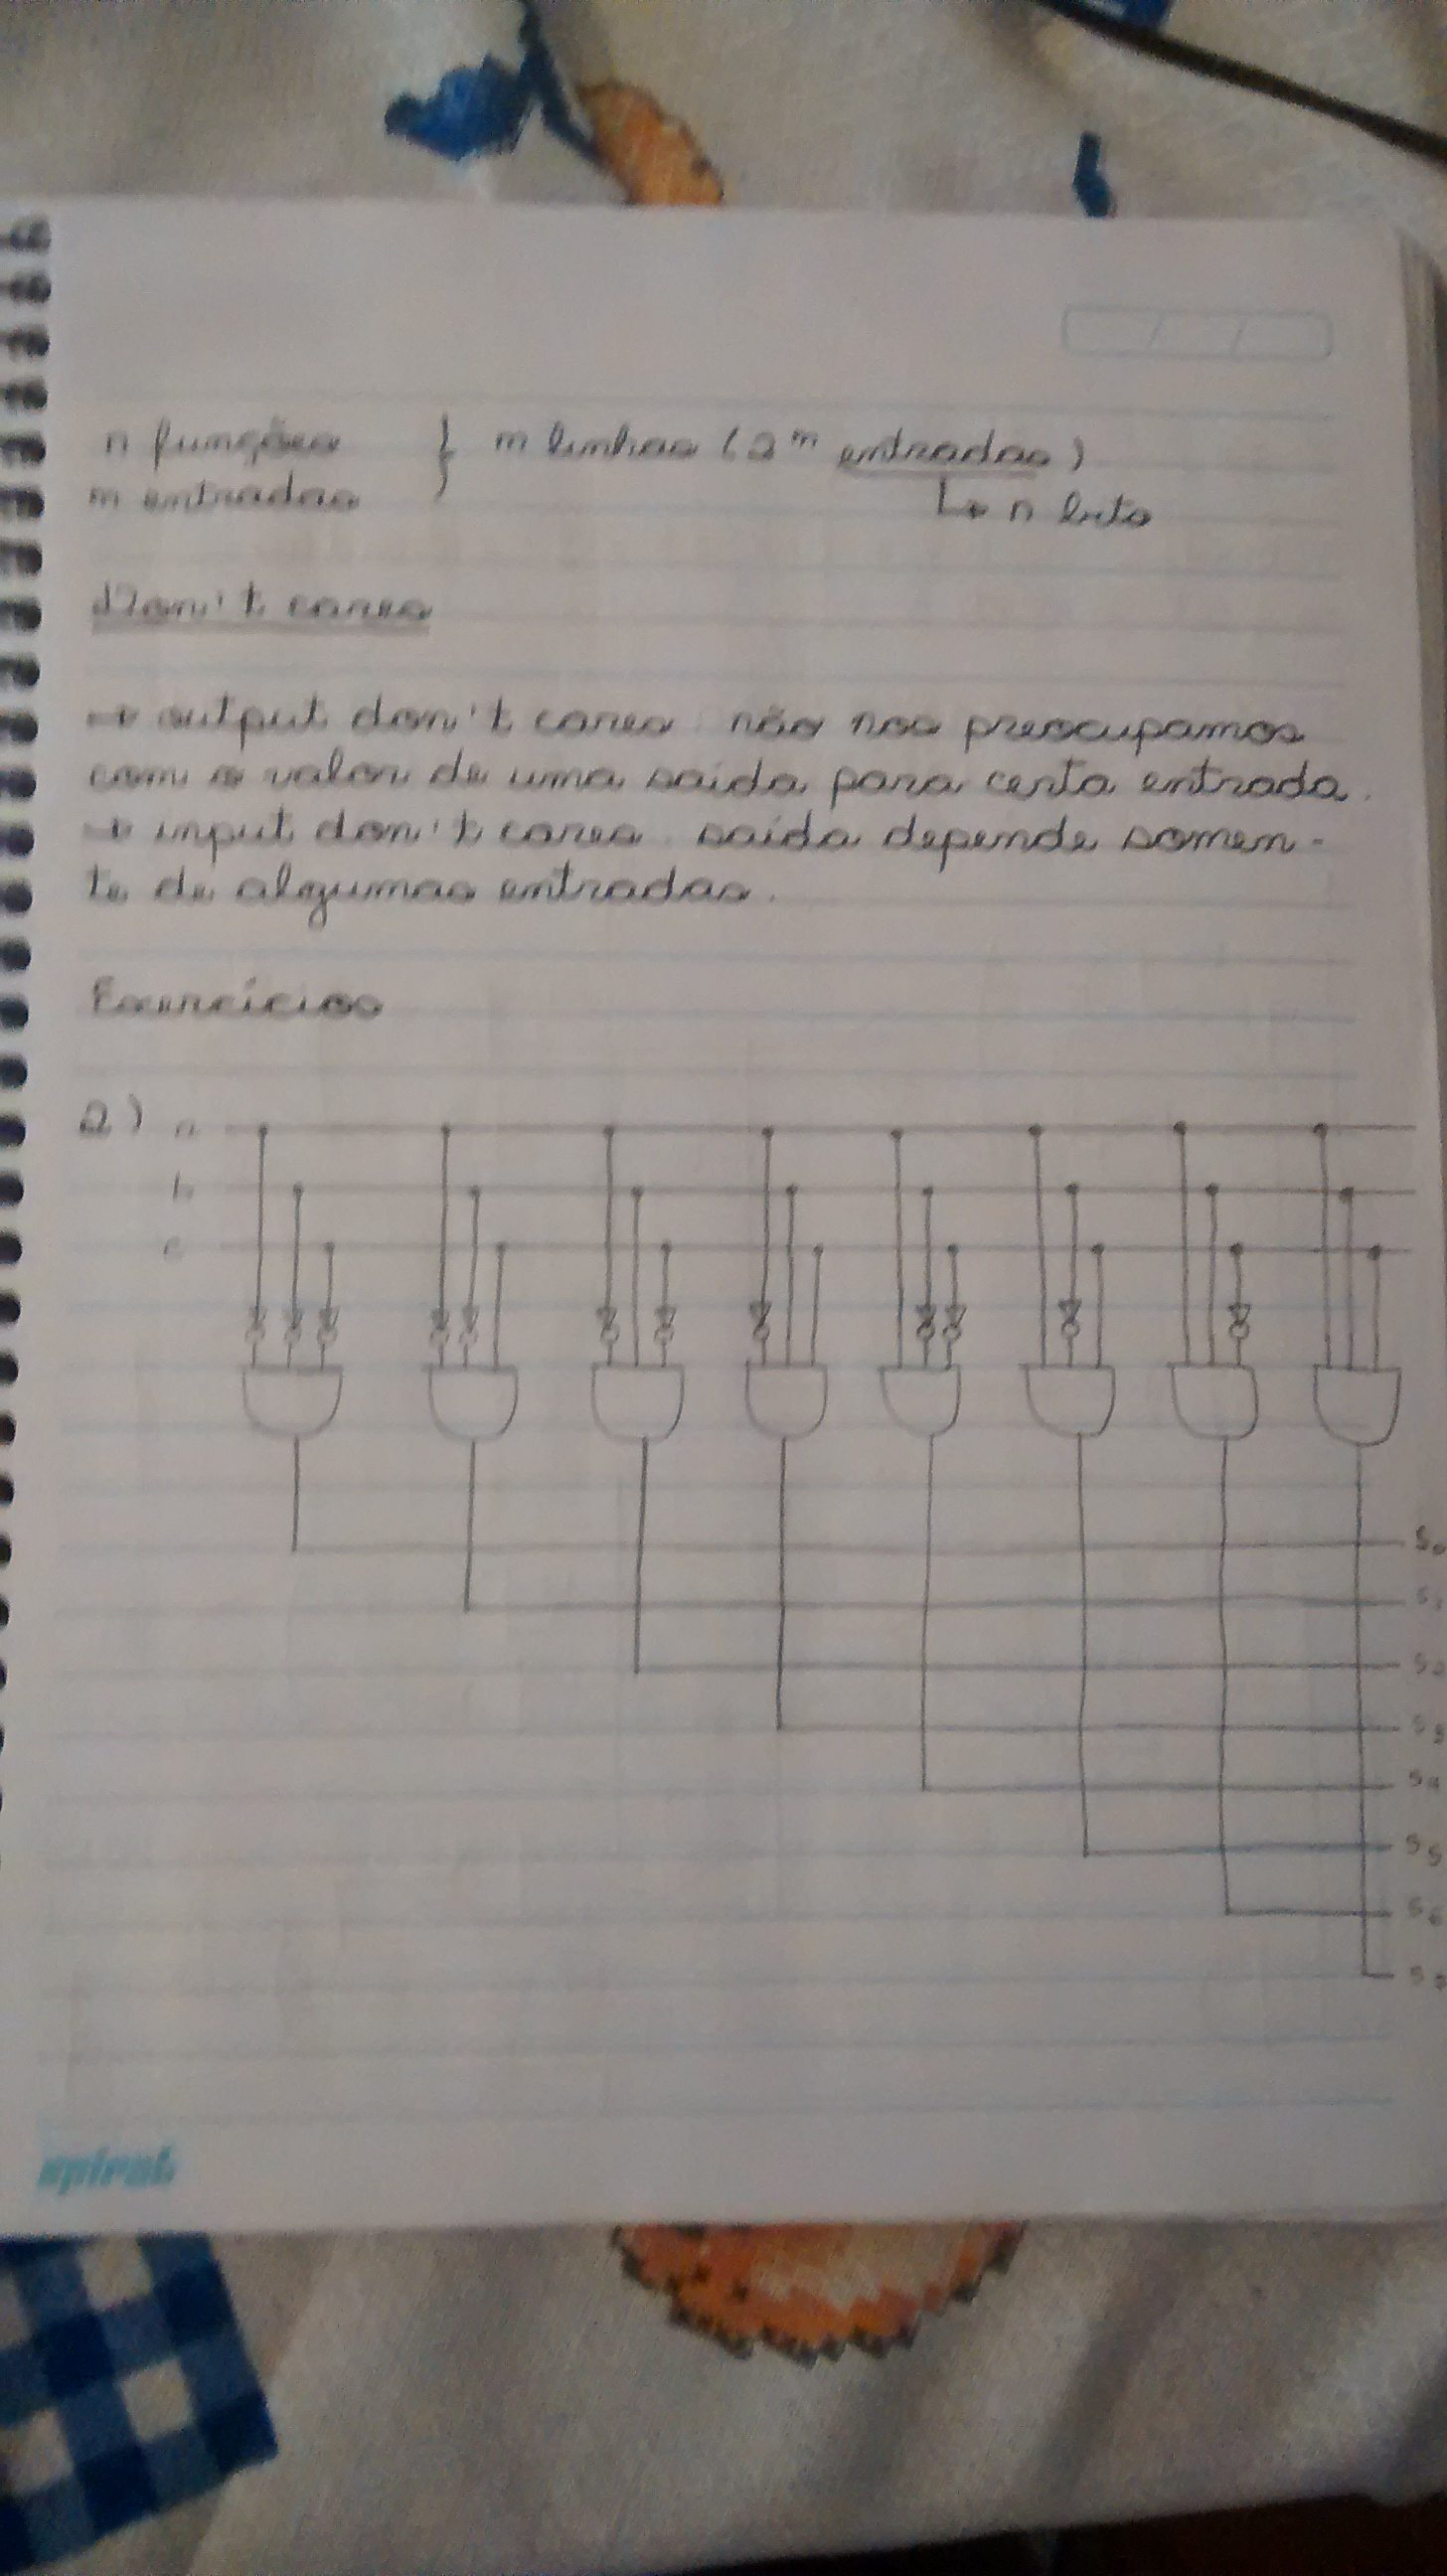 n funções } m linhas (2^m entradas)
m entradas ↳ n bits
Don't cares
→ output don't cares: não nos preocupamos
com o valor de uma saída para certa entrada.
→ input don't cares: saída depende somen-
te de algumas entradas.
Exercícios
2) a
b
c
S0
S1
S2
S3
S4
S5
S6
spiral